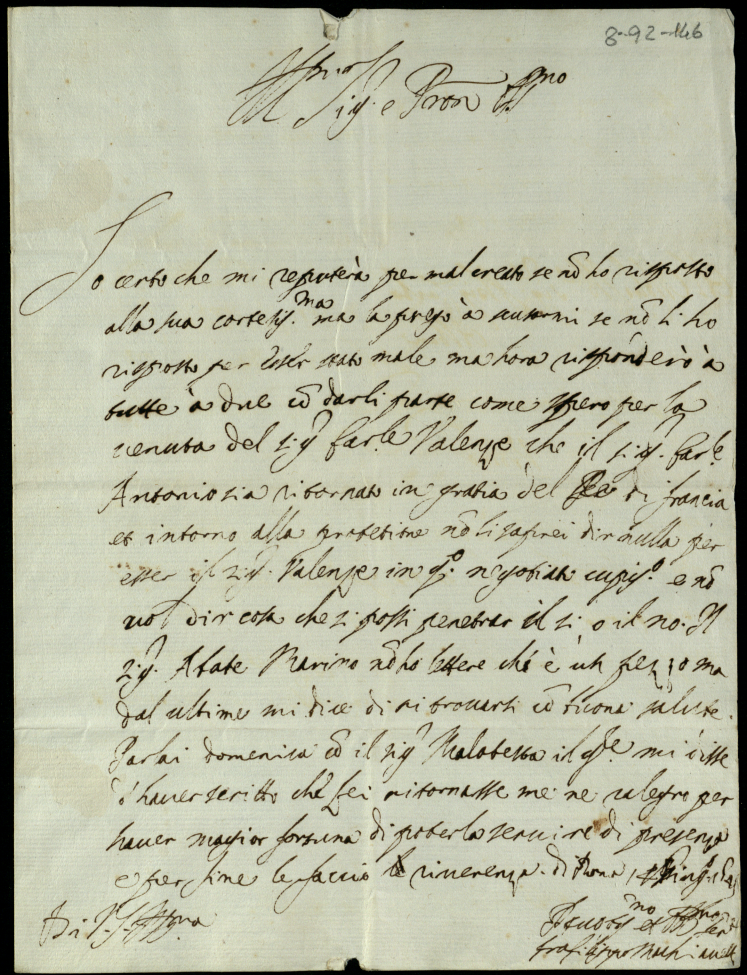 8-92-146
Ill.mo Sig. e Pron
Io certo che mi reputerà per mal creato se nõ ho risposto
alla sua cortesis.ma ma la prego à scusarmi se nõ li ho
risposto per esser stato male ma hora risponderò à
tutte à due cõ darli parte come spero per la
venuta del sig. Car.le Valenze che il sig. Car.le
Antonio sia ritornato in gratia del Re di francia
et intorno alla protetione nõ li saprei dir nulla per
esser il sig. Valenze in q.o negotiato cupis.o e nõ
vol dir cosa che si possi penetrar il si o il no. Il
sig. Abate Marino nõ ho lettere che è un pezzo ma
dal ultime mi dice di ritrovarsi cõ buona salute.
Parlai domenica cõ il sig. Malatesta il q.le mi disse
d'haver scritto che lei ritornasse me ne ralegro per
haver magior fortuna di poterla servire di presenza
e per fine le faccio riverenza. di Roma
Di V. S. Ill.ma
Devotis.mo et